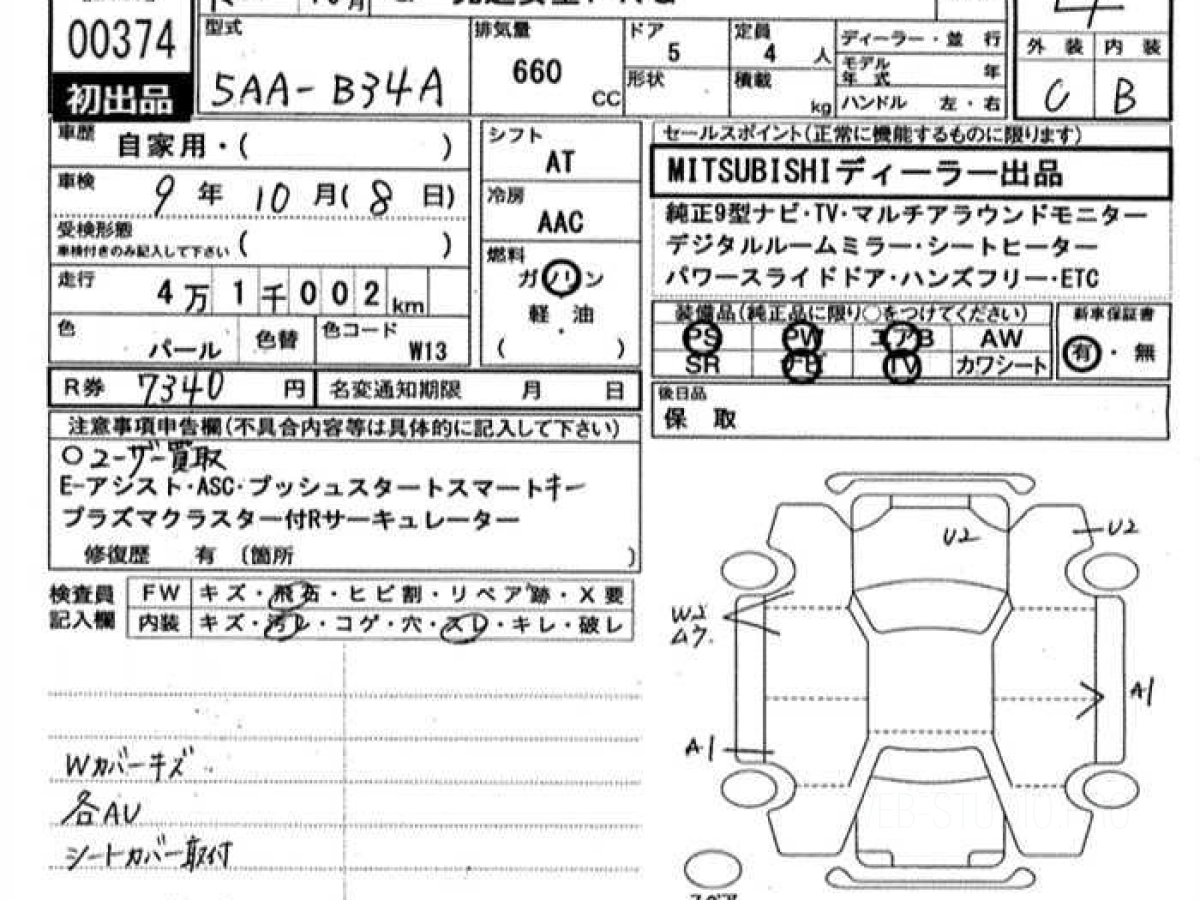 00374
初出品
型式
5AA-B34A
排気量
660
CC
ドア
5
定員
4 人
形状
積載
kg
ディーラー・並 行
モデル年式 年
ハンドル 左・右
4
外 装 内 装
C B
車歴
自家用・( )
車検
9 年 10 月( 8 日)
受検形態
車検付きのみ記入して下さい ( )
走行
4 万 1 千 0 0 2 km
色
パール
色替
色コード
W13
シフト
AT
冷房
AAC
燃料
ガソリン
軽・油
( )
セールスポイント(正常に機能するものに限ります)
MITSUBISHIディーラー出品
純正9型ナビ・TV・マルチアラウンドモニター
デジタルルームミラー・シートヒーター
パワースライドドア・ハンズフリー・ETC
装備品(純正品に限り○をつけてください)
PS PW エアB AW
SR ナビ TV カワシート
新車保証書
有・無
R券 7340 円
名変通知期限 月 日
後日品
保 取
注意事項申告欄(不具合内容等は具体的に記入して下さい)
○ユーザー買取
E-アシスト・ASC・プッシュスタートスマートキー
プラズマクラスター付Rサーキュレーター
修復歴 有 (箇所 )
検査員記入欄
FW キズ・飛石・ヒビ割・リペア跡・X要
内装 キズ・汚レ・コゲ・穴・スレ・キレ・破レ
Wカバーキズ
各AU
シートカバー取付
U2
U2
W2
ムラ
A1
A1
スペア